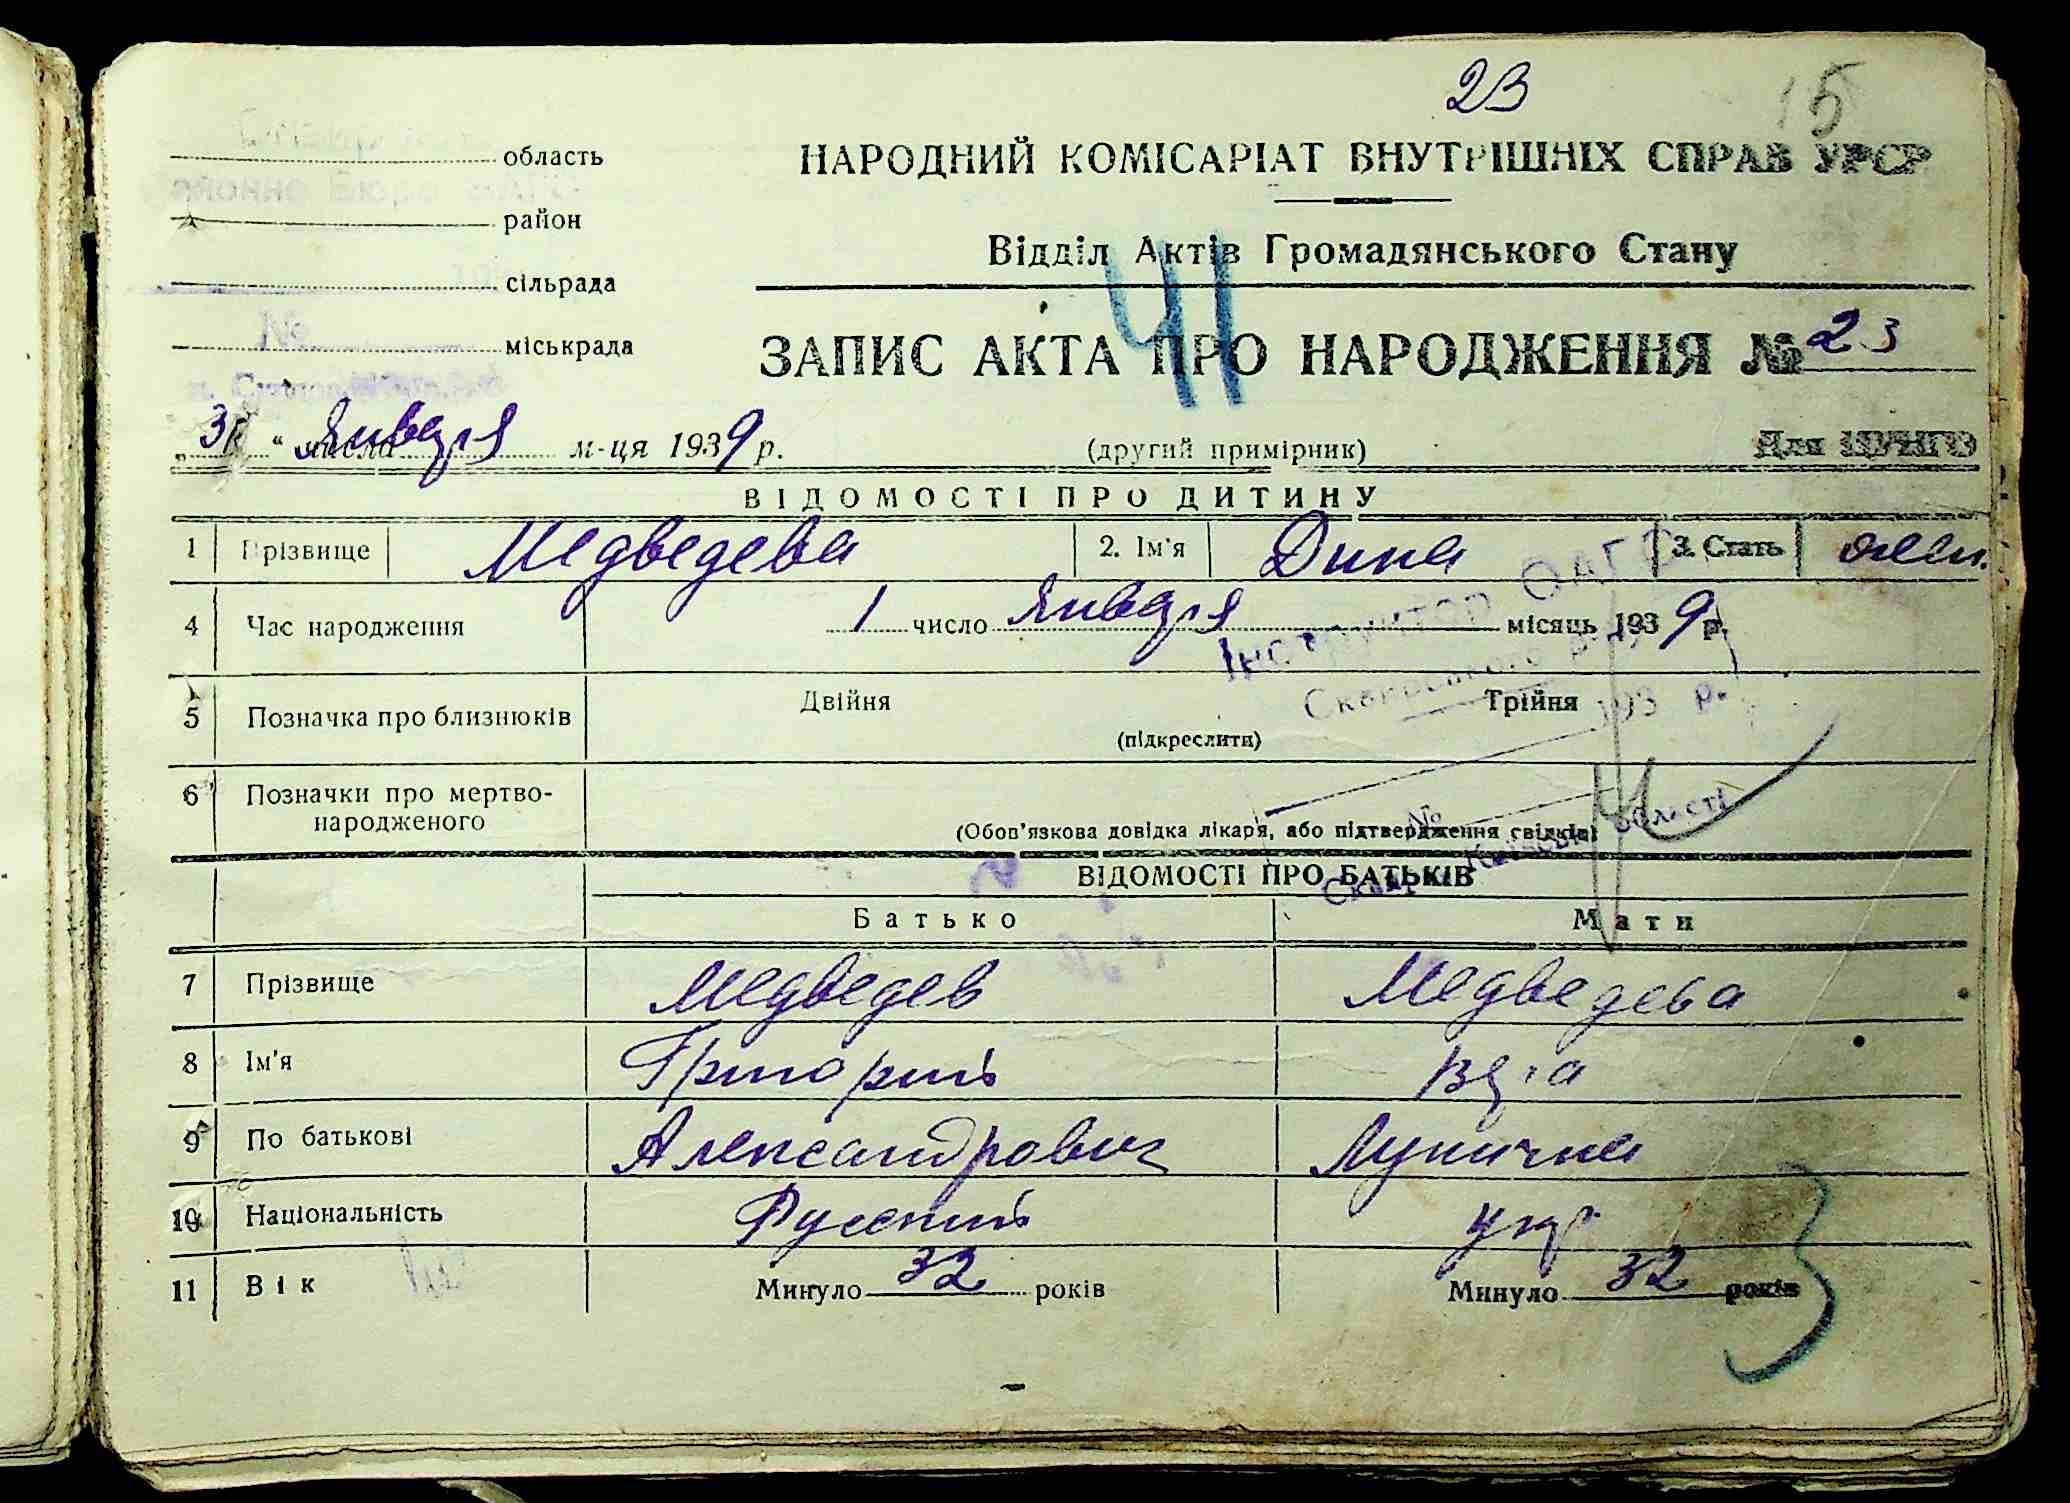 23
15
область
НАРОДНИЙ КОМІСАРІАТ ВНУТРІШНІХ СПРАВ УРСР
район
Відділ Актів Громадянського Стану
сільрада
41
міськрада
ЗАПИС АКТА ПРО НАРОДЖЕННЯ № 23
„ 31 “ числа Января м-ця 1939 р.
(другий примірник)
Для ЦУНГО
ВІДОМОСТІ ПРО ДИТИНУ
1 Прізвище Медведева 2. Ім'я Дина 3. Стать жен.
Інструктор ОАГС
4 Час народження 1 число Января місяць 1939 р.
Сквирського
193 р.
5 Позначка про близнюків Двійня Трійня
(підкреслити)
6 Позначки про мертво-
народженого
(Обов'язкова довідка лікаря, або підтвердження свідків)
№
області
ВІДОМОСТІ ПРО БАТЬКІВ
Батько Мати
7 Прізвище Медведев Медведева
8 Ім'я Григорий Вера
9 По батькові Александрович
10 Національність Русский укр.
11 Вік Минуло 32 років Минуло 32 років
3